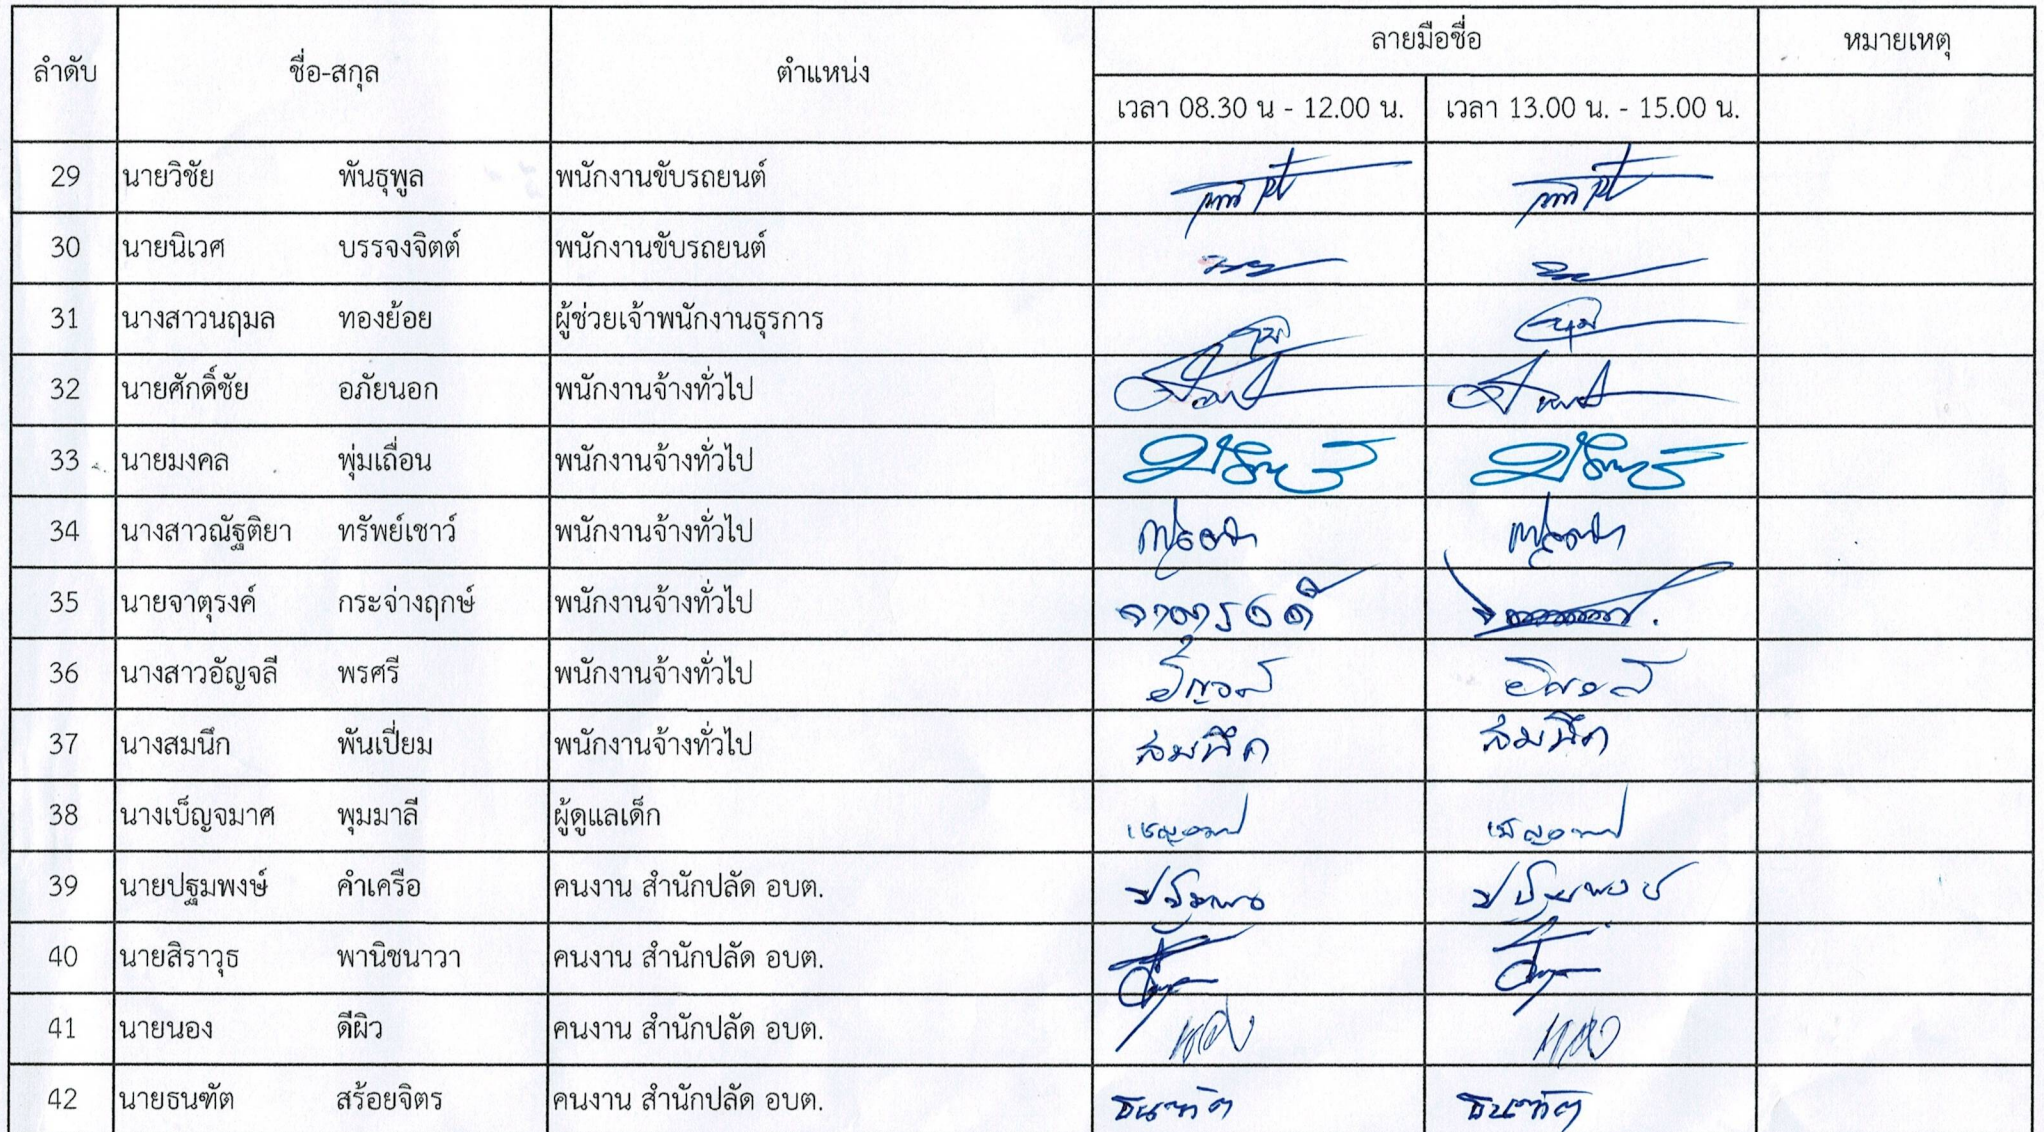 ลำดับ ชื่อ-สกุล ตำแหน่ง ลายมือชื่อ หมายเหตุ
เวลา 08.30 น - 12.00 น. เวลา 13.00 น. - 15.00 น.
29 นายวิชัย พันธุพูล พนักงานขับรถยนต์
30 นายนิเวศ บรรจงจิตต์ พนักงานขับรถยนต์
31 นางสาวนฤมล ทองย้อย ผู้ช่วยเจ้าพนักงานธุรการ
32 นายศักดิ์ชัย อภัยนอก พนักงานจ้างทั่วไป
33 นายมงคล พุ่มเถื่อน พนักงานจ้างทั่วไป
34 นางสาวณัฐติยา ทรัพย์เชาว์ พนักงานจ้างทั่วไป
35 นายจาตุรงค์ กระจ่างฤกษ์ พนักงานจ้างทั่วไป
36 นางสาวอัญจลี พรศรี พนักงานจ้างทั่วไป
37 นางสมนึก พันเปี่ยม พนักงานจ้างทั่วไป สมนึก สมนึก
38 นางเบ็ญจมาศ พุมมาลี ผู้ดูแลเด็ก
39 นายปฐมพงษ์ คำเครือ คนงาน สำนักปลัด อบต.
40 นายสิราวุธ พานิชนาวา คนงาน สำนักปลัด อบต.
41 นายนอง ดีผิว คนงาน สำนักปลัด อบต.
42 นายธนฑัต สร้อยจิตร คนงาน สำนักปลัด อบต. ธนฑัต ธนฑัต